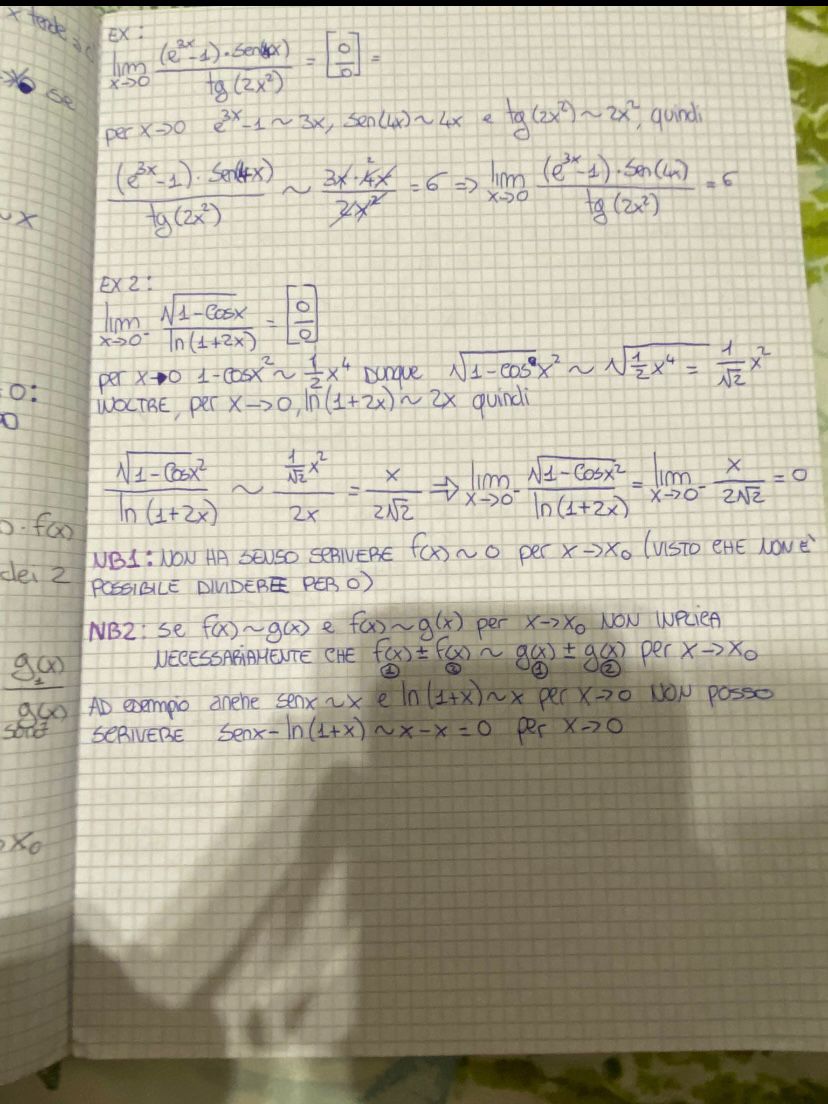 x tende a
EX:
lim x→0 (e^2x-1)·sen(4x) / tg(2x²) = [0/0] =
se
per x→0 e^3x-1 ~ 3x, sen(4x) ~ 4x e tg(2x²) ~ 2x², quindi
(e^3x-1)·sen(4x) / tg(2x²) ~ 3x·4x / 2x² = 6 => lim x→0 (e^3x-1)·sen(4x) / tg(2x²) = 6
~x
EX 2:
lim x→0⁻ √1-cosx / ln(1+2x) = [0/0]
per x→0 1-cosx² ~ 1/2 x⁴ DUNQUE √1-cosx² ~ √1/2 x⁴ = 1/√2 x²
0:
INOLTRE, per x→0, ln(1+2x) ~ 2x quindi
0
√1-cosx² / ln(1+2x) ~ 1/√2 x² / 2x = x / 2√2 => lim x→0⁻ √1-cosx² / ln(1+2x) = lim x→0⁻ x / 2√2 = 0
· f(x)
NB1: NON HA SENSO SCRIVERE f(x) ~ 0 per x→x₀ (VISTO CHE NON È
dei 2
POSSIBILE DIVIDERE PER 0)
NB2: se f(x) ~ g(x) e f(x) ~ g(x) per x→x₀ NON IMPLICA
NECESSARIAMENTE CHE f(x) ± f(x) ~ g(x) ± g(x) per x→x₀
① ② ① ②
g(x)
1
g(x)
AD esempio anche senx ~ x e ln(1+x) ~ x per x→0 NON POSSO
SCRIVERE senx - ln(1+x) ~ x-x = 0 per x→0
x₀